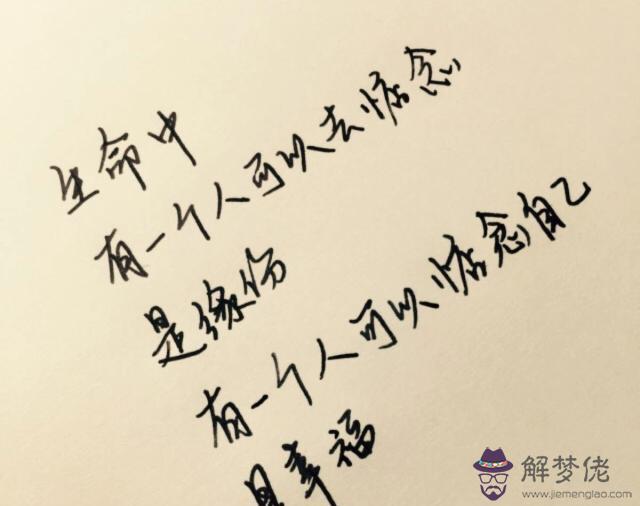 生命中
有一个人可以去惦念
是缘份
有一个人可以惦念自己
是幸福
解梦佬
www.jiemenglao.com